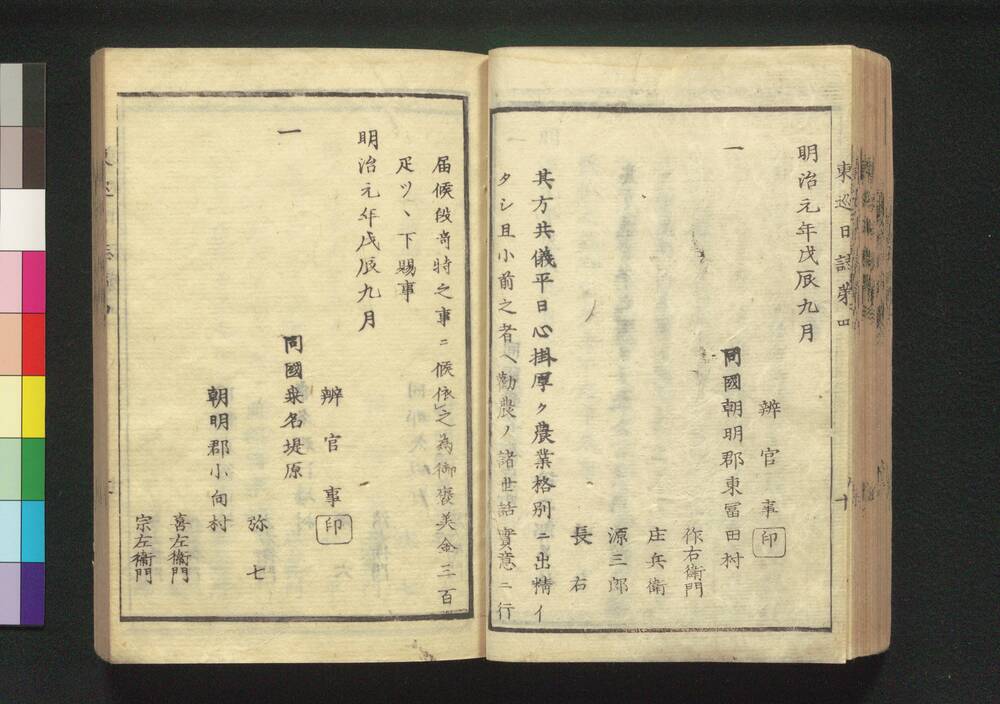 東巡日誌第四
十
明治元年戊辰九月
辨官事 印
一
同國朝明郡東冨田村
作右衛門
庄兵衛
源三郎
長右
其方共儀平日心掛厚ク農業格別ニ出精イ
タシ且小前之者ヘ勸農ノ諸世話實意ニ行
届候段奇特之事ニ候依之為御褒美金三百
疋ツヽ下賜事
明治元年戊辰九月
辨官事 印
一
同國桒名堤原
弥七
朝明郡小向村
喜左衛門
宗左衛門